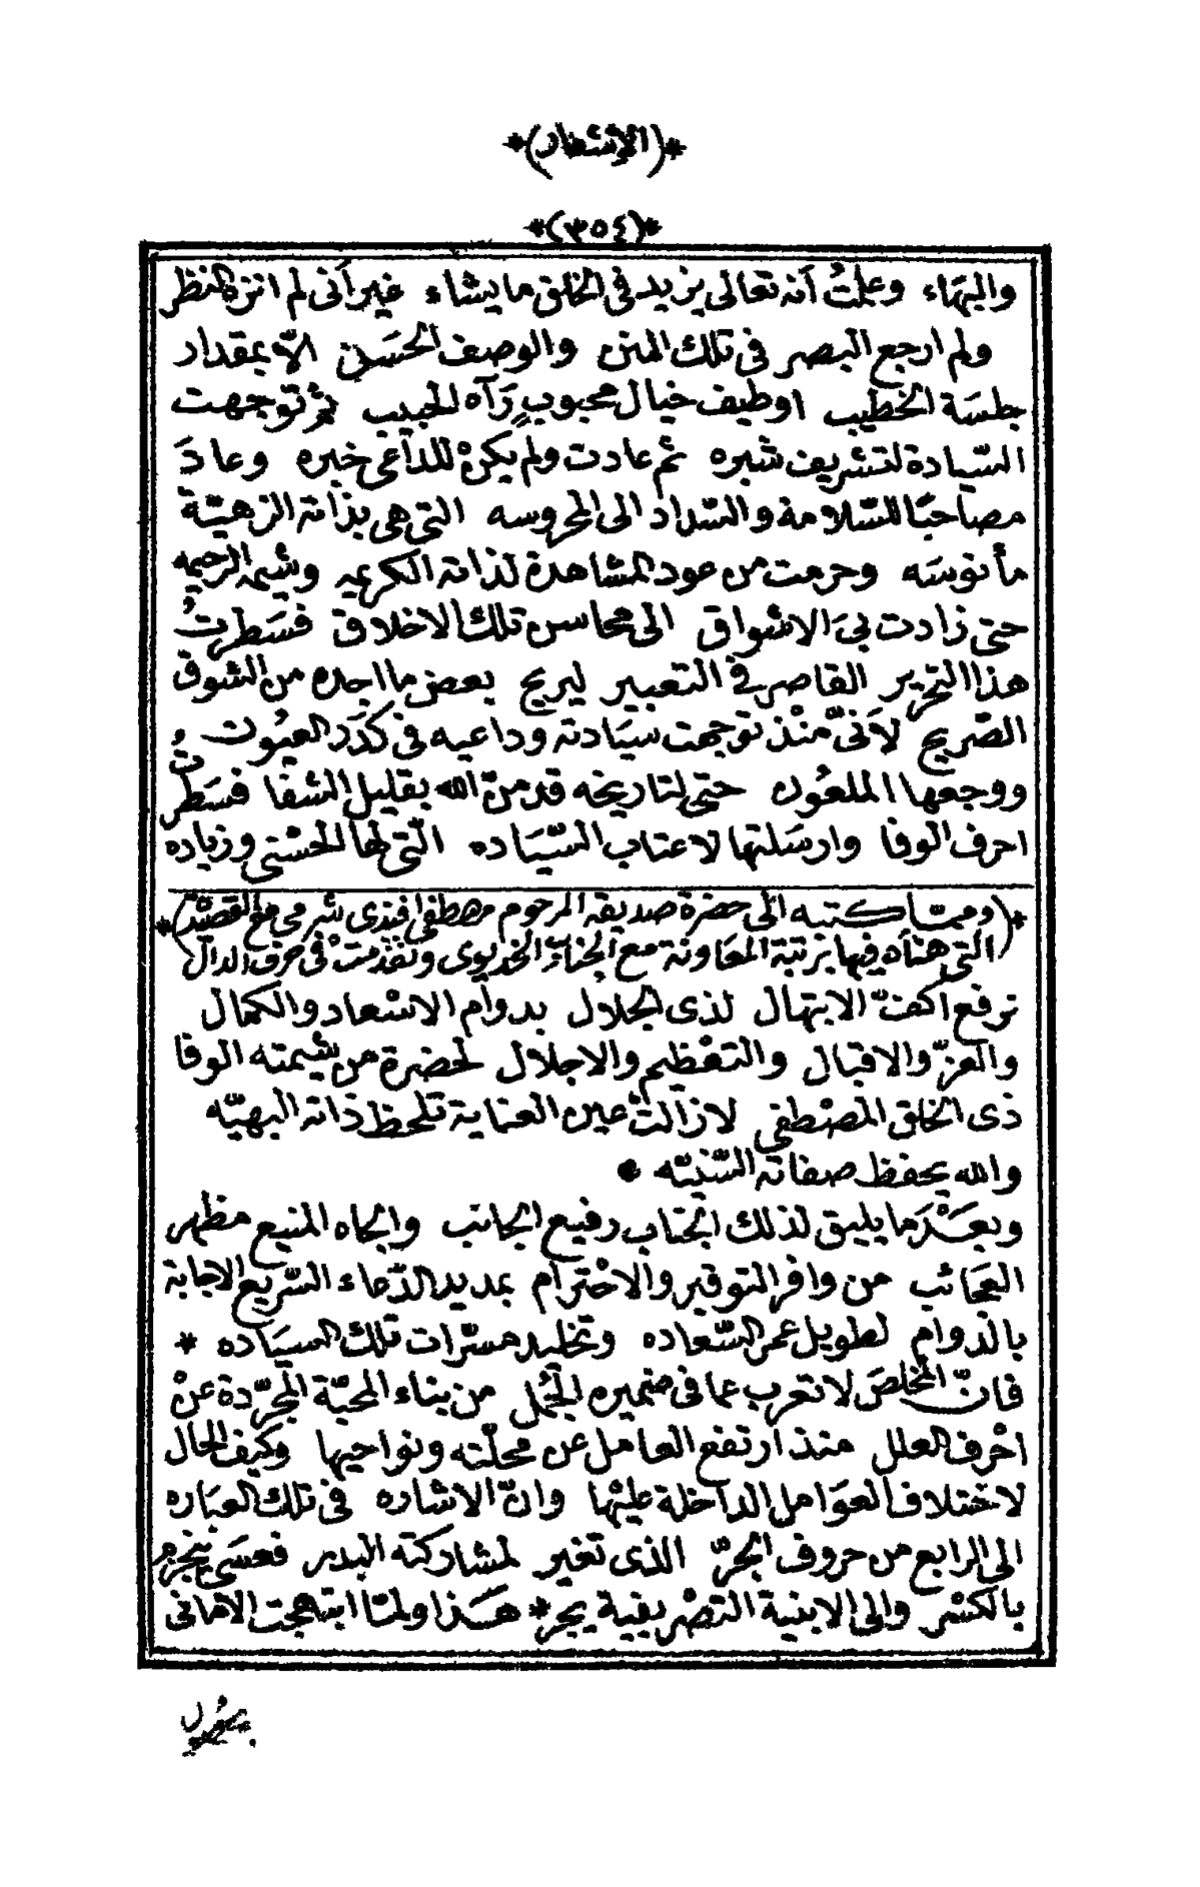 *(الإشعار)*
*(٣٥٤)*
والبهاء وعلمتُ أنه تعالى يزيد في الخلق ما يشاء غير أنى لم انزه النظر
ولم ارجع البصر في تلك المنن والوصف الحسَن الّا بمقدار
جلسَة الخطيب اوطيف خيال محبوبٍ رَآه الحبيب ثم توجهت
السّيادة لتشريف شبره ثم عادت ولم يكنْ للداعى خبره وعادَ
مصاحبًا للسّلامة والسّداد الى المحروسه التى هى بذاته الزهيّة
مأنوسَه وحرمت من عود المشاهدة لذاته الكريمه وشيمه الرحيمه
حتى زادت بىَ الاشواق الى محاسن تلك الاخلاق فسَطرتُ
هذا التحرير القاصر في التعبير ليريح بعض ما اجده من الشوق
الصّريح لأنىّ منْذ توجهت سيَادته وداعيه في كدَر العيُون
ووجعها الملعُون حتى لتاريخه قد منّ الله بقليل الشفا فسَطرتُ
احرف الوفا وارسَلتها لاعتاب السّيَاده الّتى لها الحسْنى وزياده
*(وممّا كتبه الى حضرة صديقه المرحوم مصطفى افندى شرمى مع القصيدة)*
(التى هنأه فيها برتبة المعَاونة مع الجناب الخديوى وتقدّمتْ فى حرف الدال)
نرفع اكفّ الابتهال لذى الجلال بدوام الاسْعاد والكمال
والعزّ والاقبال والتعْظيم والاجلال لحضرة من شيمته الوفا
ذى الخلق المصْطفى لازالتْ عين العناية تلحظ ذاته البهيّه
والله يحفظ صفاته السّنيّه *
وبعَدْ ما يليق لذلك الجناب رفيع الجانب والجاه المنيع مظهر
العجَائب من وافر التوقير والاحْترام بمديد الدّعاء السّريع الاجابة
بالدوام لطويل عمر السّعاده وتخليد مسرّات تلك السيَاده *
فانّ المخلصَ لا تعرب عما فى ضميره الجُمل من بناء المحبّة المجرّدة عنْ
احْرف العلل منذ ارتفع العامل عن محلّته ونواحيها وكيف الحال
لاختلاف العوَامل الداخلة عليْها وانّ الاشاره فى تلك العبَاره
الى الرابع من حروف الجرّ الذى تغير لمشاركته البدر فعسَى ينجزم
بالكسْر والى الابنية التصْريفية يجر * هكَذا ولمّا ابتهجت الامانى
بحُول